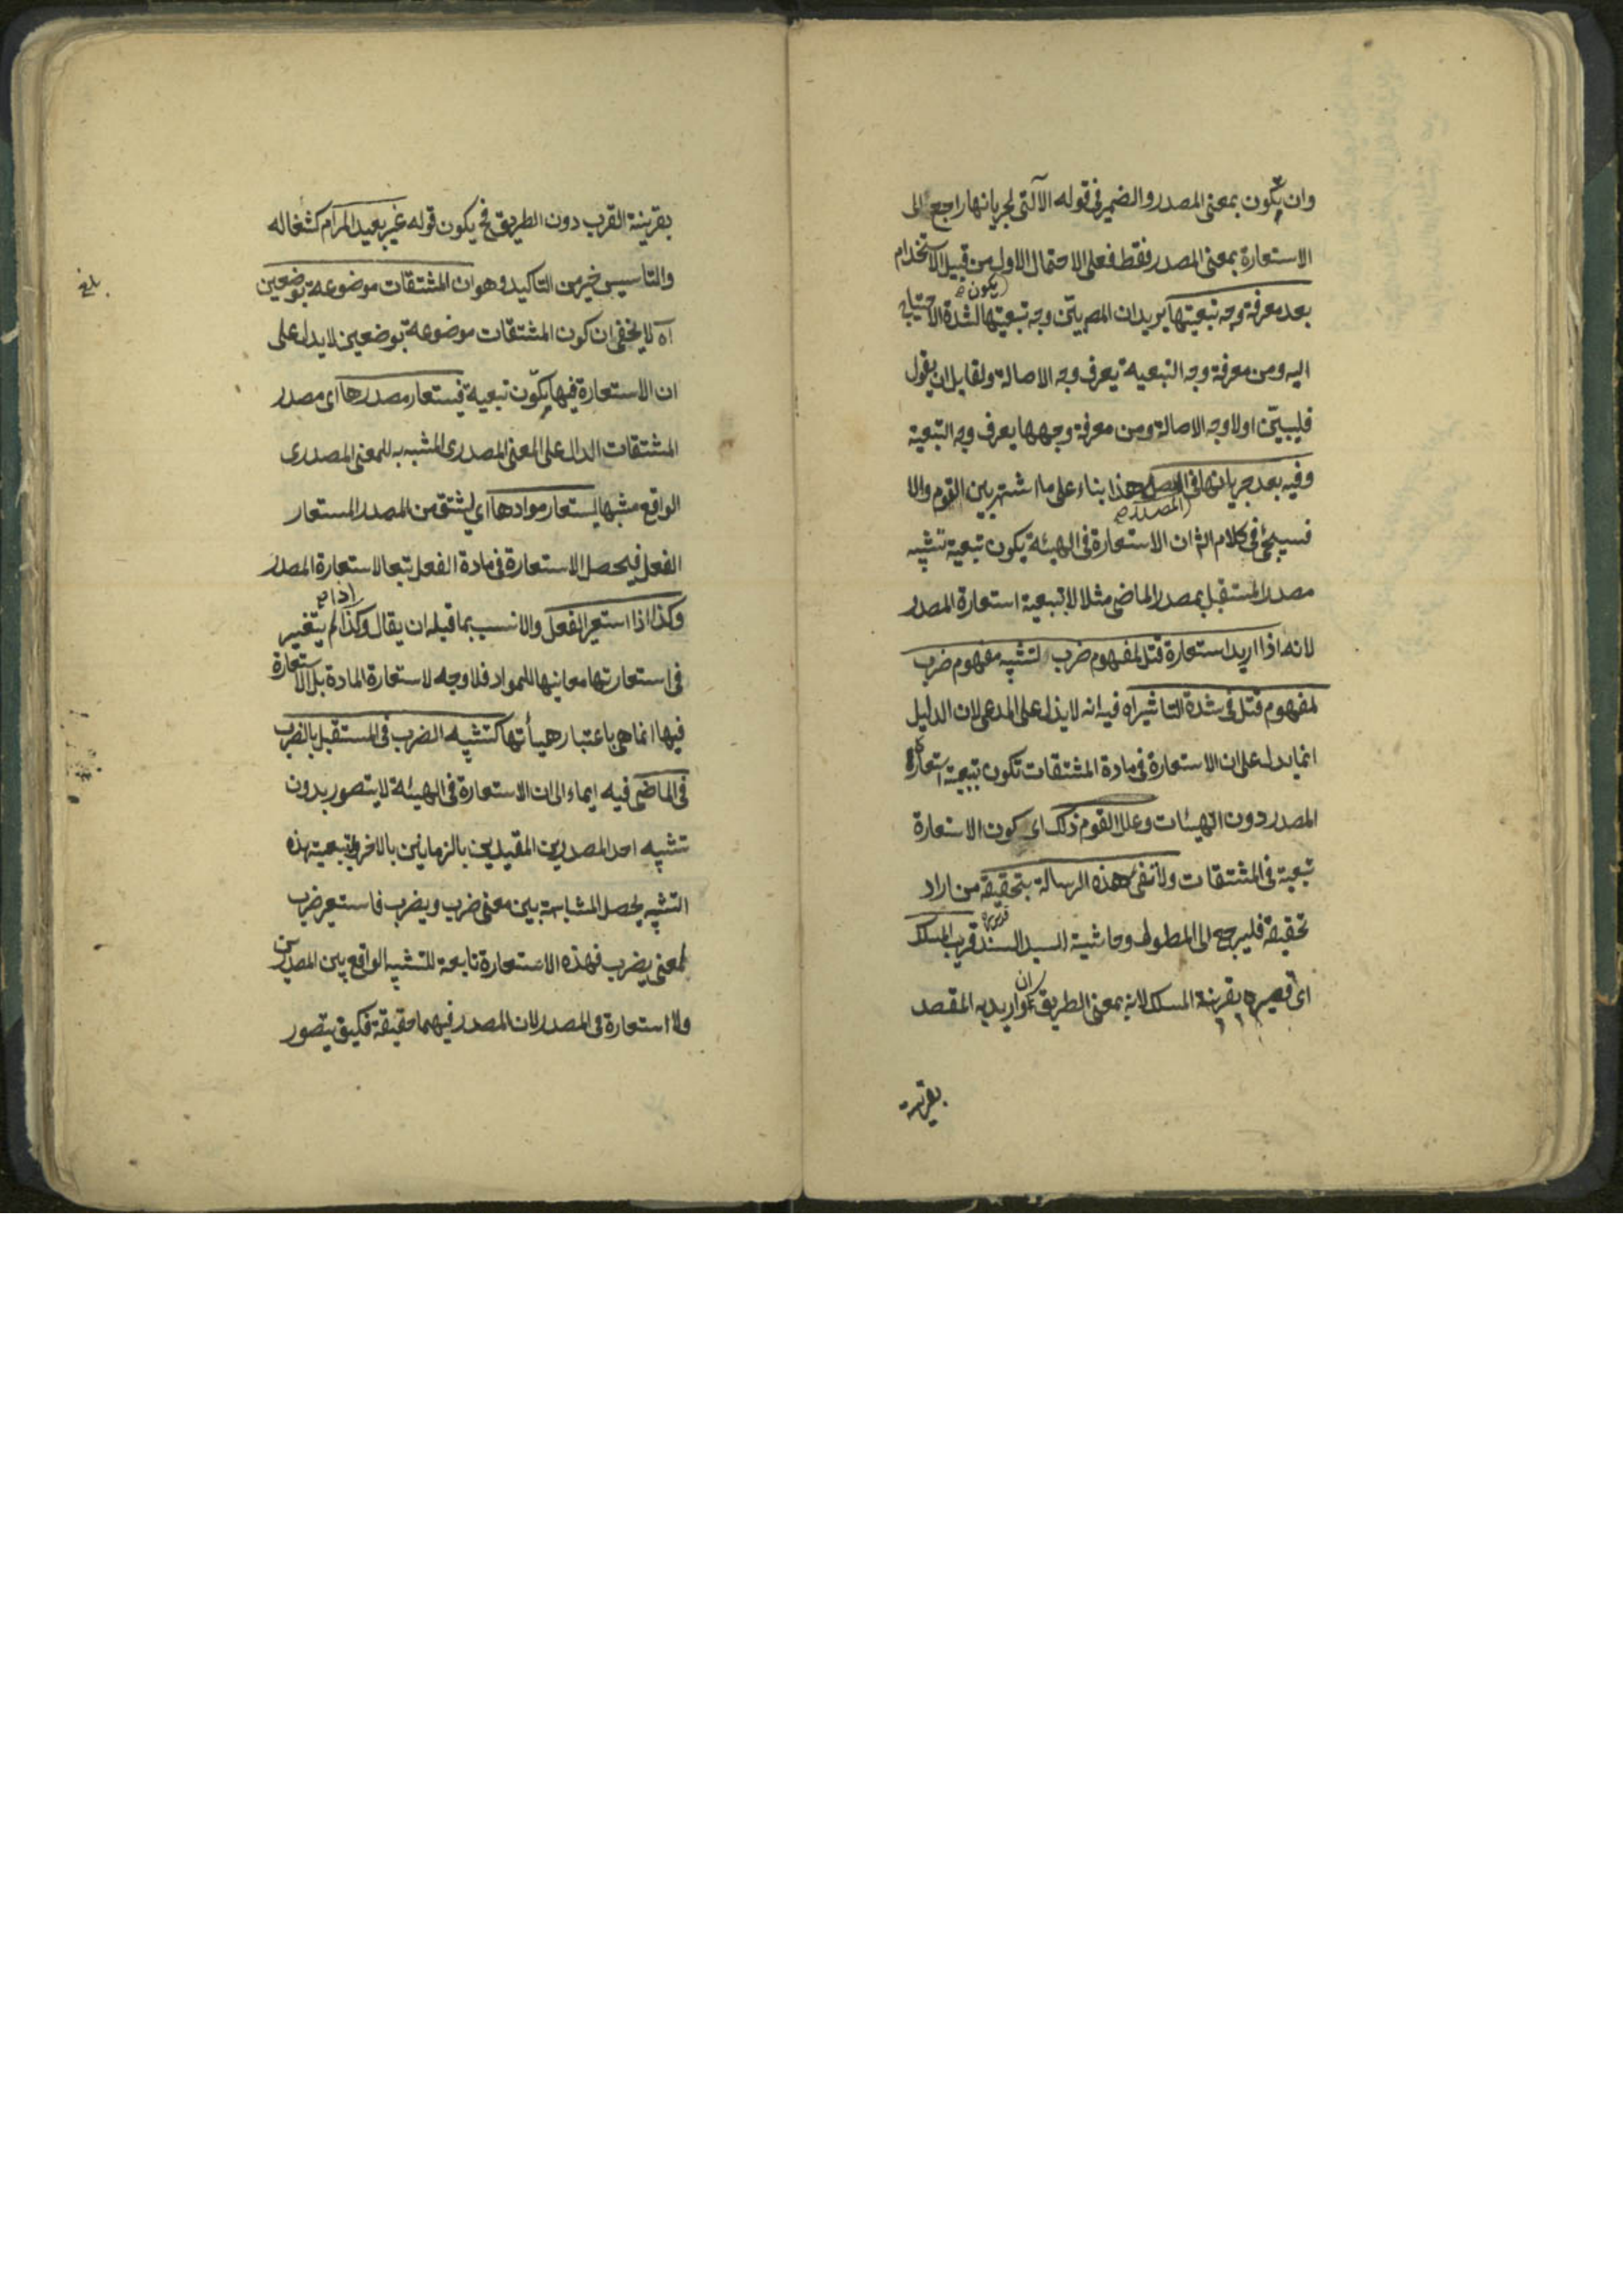 وان يكون بمعنى المصدر والضمير فى قوله الآتى لجريانها راجع الى
الاستعارة بمعنى المصدر فقط فعلى الاحتمال الاول من قبيل الاستخدام
يكون صح
بعد معرفة وجه تبعيتها يريد ان المص بيّن وجه تبعيتها لشدة الاحتياج
اليه ومن معرفة وجه التبعية يعرف وجه الاصالة ولقايل ان يقول
فليبيّن اولا وجه الاصالة ومن معرفة وجهها يعرف وجه التبعية
وفيه بعد جريانها فى هذا بناء على ما اشتهر بين القوم والا
المصدر صح
فسيجئ فى كلام الش ان الاستعارة فى الهيئة يكون تبعية تشبيه
مصدر المستقبل بمصدر الماضى مثلا لا بتبعية استعارة المصدر
لانه اذا اريد استعارة قتل لمفهوم ضرب لتشبيه مفهوم ضرب
لمفهوم قتل فى شدة التاثير اه فيه انه لا يدل على المدعى لان الدليل
انما يدل على ان الاستعارة فى مادة المشتقات تكون تبعية استعارة
المصدر دون الهيئات وعلل القوم ذلك اى كون الاستعارة
تبعية فى المشتقات ولا تفى هذه الرسالة بتحقيقه من اراد
تحقيقه فليرجع الى المطول وحاشية للسيد السند قريب المسلك
اى بقرينة المسلك لانه بمعنى الطريق ان اريد به المقصد
بقرينة
بقرينة القرب دون الطريق فح يكون قوله غير بعيد المرام كشفا له
والتاسيس خير من التاكيد وهو ان المشتقات موضوعة بوضعين
بلغ
آه لا يخفى ان كون المشتقات موضوعة بوضعين لا يدل على
ان الاستعارة فيها يكون تبعية فيستعار مصدرها اى مصدر
المشتقات الدال على المعنى المصدرى المشبه به للمعنى المصدرى
الواقع مشبها ليستعار موادها اى ليشتق من المصدر المستعار
الفعل فيحصل الاستعارة فى مادة الفعل تبعا لاستعارة المصدر
اذا صح
وكذا اذا استعير الفعل والانسب بما قبله ان يقال وكذا لم يتغير
فى استعارتها معانيها للمواد فلا وجه لاستعارة المادة بل الاستعارة
فيها انما هى باعتبار هيأتها كتشبيه الضرب فى المستقبل بالضرب
فى الماضى فيه ايماء الى ان الاستعارة فى الهيئة لا يتصور بدون
تشبيه احد المصدرين المقيدين بالزمانين بالاخر وبتبعية هذه
التشبيه يحصل المشابهة بين معنى ضرب ويضرب فاستعير ضرب
لمعنى يضرب فهذه الاستعارة تابعة للتشبيه الواقع بين المصدرين
ولا استعارة فى المصدر لان المصدر فيهما حقيقة فكيف يتصور